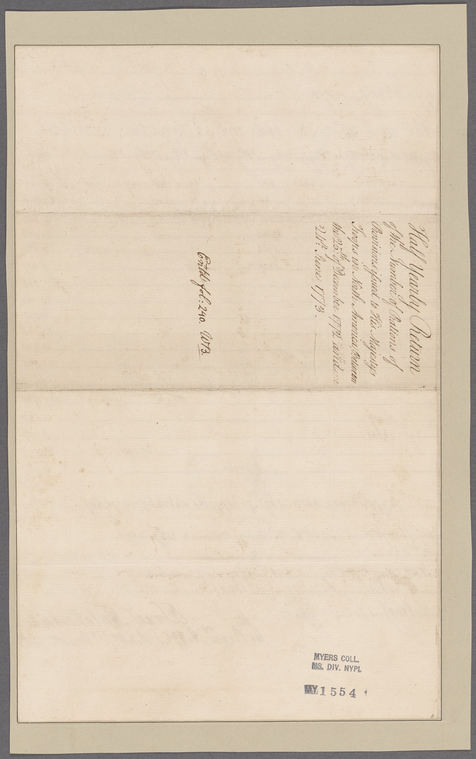 Half Yearly Return
of the Number of Rations of
Provisions issued to His Majesty's
Troops in North America between
the 25th of December 1772 and
24th June 1773.
Entd. fol: 240.
MYERS COLL.
MS. DIV. NYPL
1554